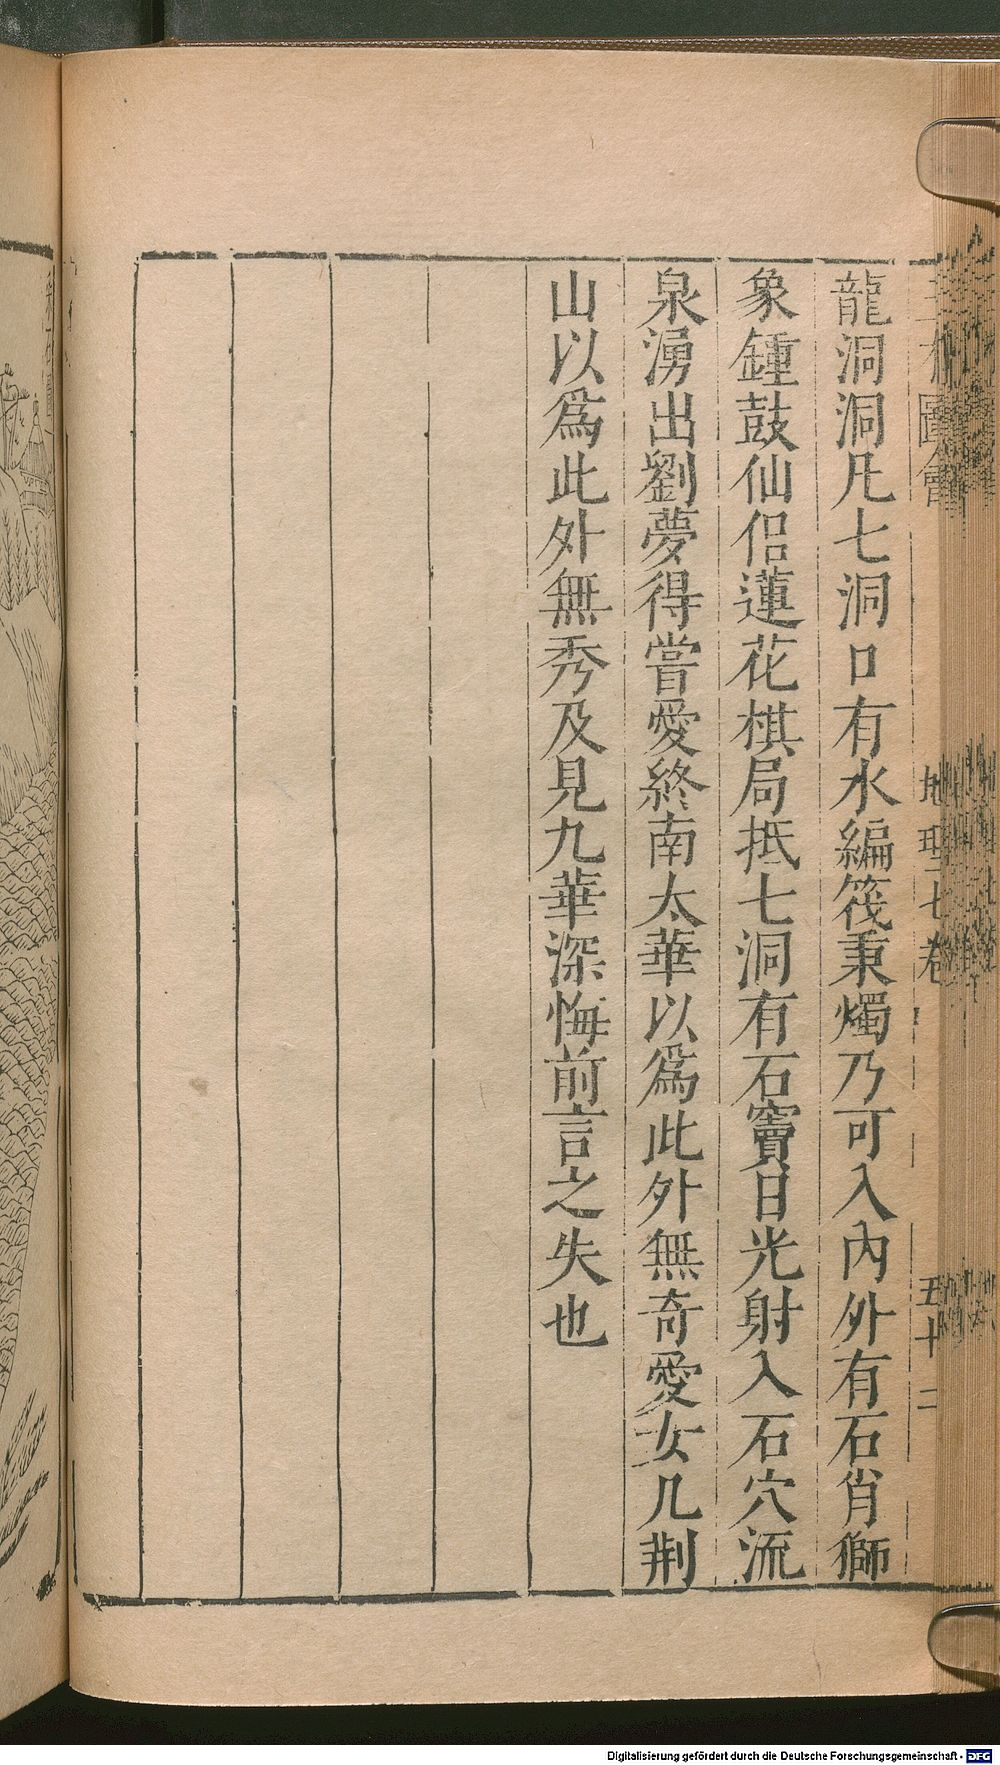 三才圖會
地理七卷
五十二
龍洞洞凡七洞口有水編筏秉燭乃可入內外有石肖獅
象鍾鼓仙侶蓮花棋局抵七洞有石竇日光射入石穴流
泉湧出劉夢得嘗愛終南太華以爲此外無奇愛女几荆
山以爲此外無秀及見九華深悔前言之失也
Digitalisierung gefördert durch die Deutsche Forschungsgemeinschaft - DFG